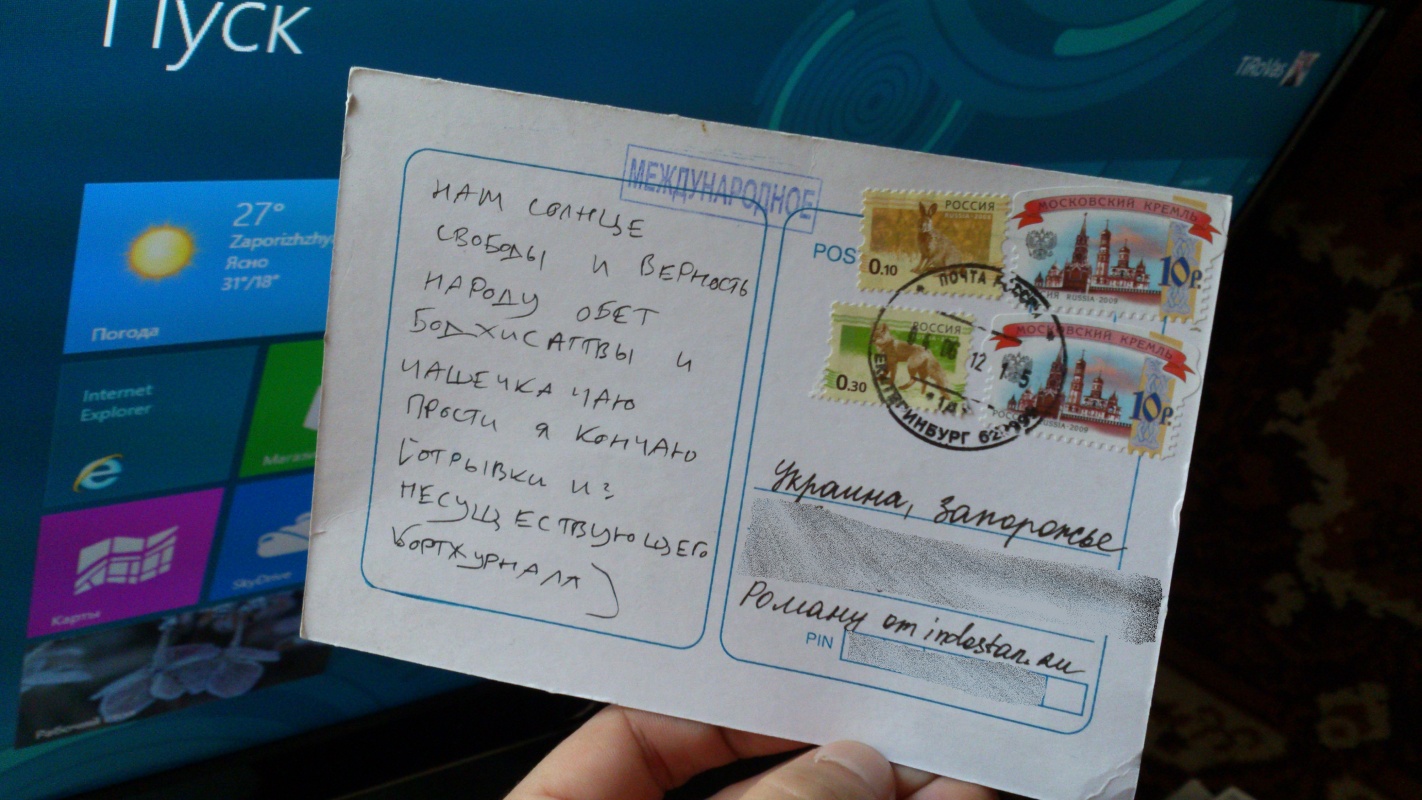 Пуск
TiRoVas
27°
Zaporizhzhy
Ясно
31°/18°
Погода
Internet
Explorer
Магази
Карты
SkyDrive
Рабочий
МЕЖДУНАРОДНОЕ
НАМ СОЛНЦЕ
СВОБОДЫ И ВЕРНОСТЬ
НАРОДУ ОБЕТ
БОДХИСАТТВЫ И
ЧАШЕЧКА ЧАЮ
ПРОСТИ Я КОНЧАЮ
(ОТРЫВКИ ИЗ
НЕСУЩЕСТВУЮЩЕГО
БОРТЖУРНАЛА)
POS
РОССИЯ
RUSSIA·2008
0.10
МОСКОВСКИЙ КРЕМЛЬ
10р.
RUSSIA·2009
РОССИЯ
0.30
МОСКОВСКИЙ КРЕМЛЬ
10р.
RUSSIA·2009
ПОЧТА
06 12
ЕКАТЕРИНБУРГ
Украина, Запорожье
Роману от indostan.ru
PIN